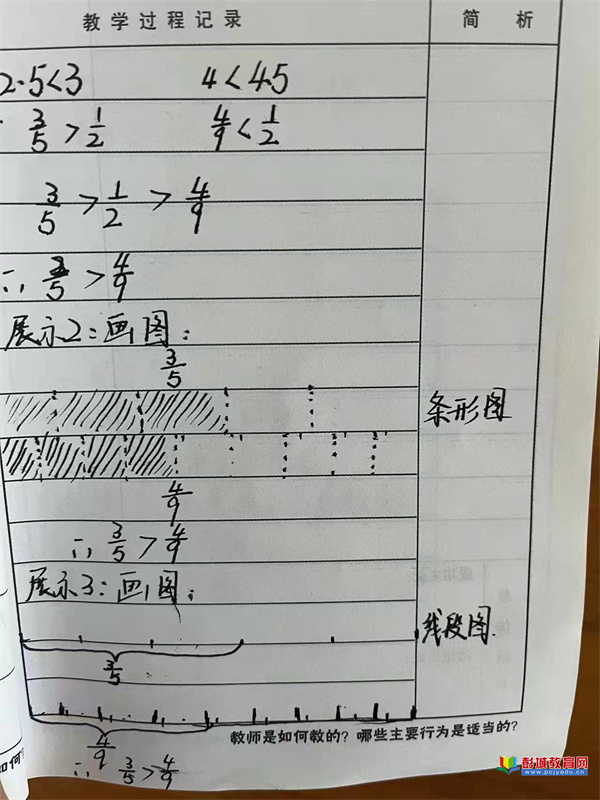 教学过程记录 简 析
2.5<3 4<4.5
3/5 > 1/2 4/9 < 1/2
3/5 > 1/2 > 4/9
∴ 3/5 > 4/9
展示2：画图：
3/5
条形图
4/9
∴ 3/5 > 4/9
展示3：画图：
线段图.
3/5
4/9
教师是如何教的？哪些主要行为是适当的？
∴ 3/5 > 4/9
彭城教育网
www.pcjyedu.cn